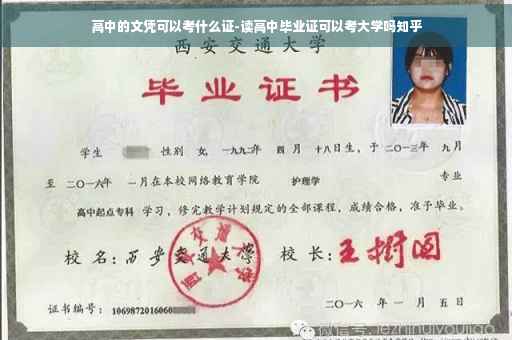 高中的文凭可以考什么证-读高中毕业证可以考大学吗知乎
西安交通大学
毕业证书
学生 性别 女, 一九九二年 四 月 十八日生, 于二〇一三年 九月
至 二〇一六年 一月在本校网络教育学院 护理学 专业
高中起点专科 学习, 修完教学计划规定的全部课程, 成绩合格, 准予毕业。
校 名: 西安交通大学 校 长: 王树国
证书编号: 1069872016060
二〇一六 年 一 月 五 日
微信号: jezhihuiyoujiao